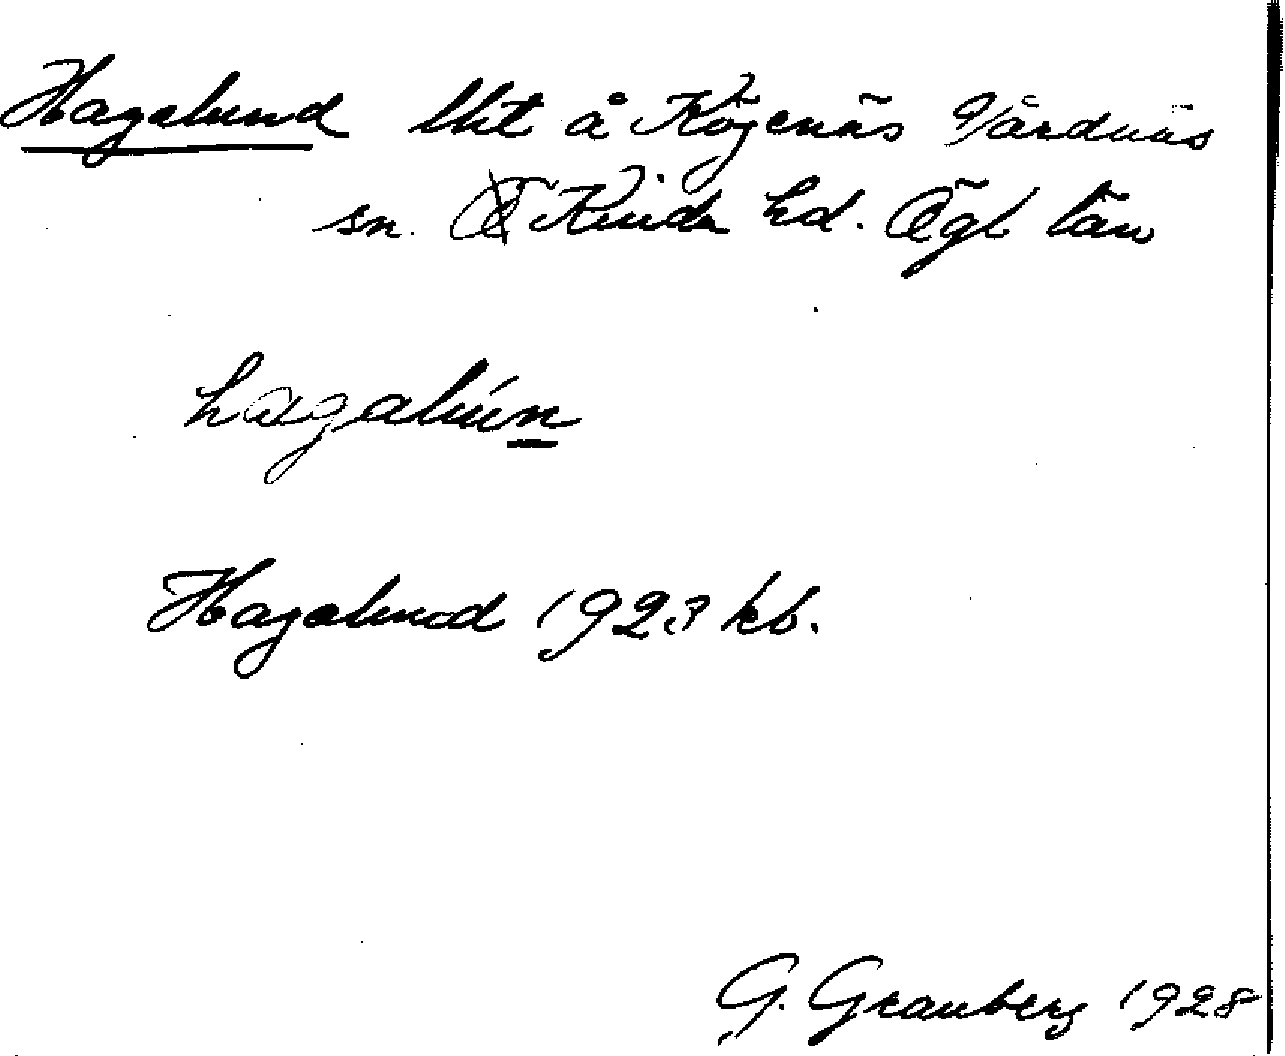 Hagalund lht å Kögenäs Vårdnäs
sn. Kinda hd. Ögl län
hagalún
Hagalund 1923 kb.
G. Granberg 1928